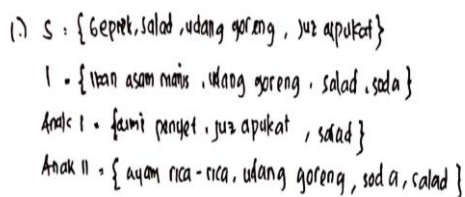 1.) S : { Geprek, salad, udang goreng, juz alpukat }
I = { ikan asam manis, udang goreng, salad, soda }
Anak I = { ayam penyet, juz apukat, salad }
Anak II = { ayam rica-rica, udang goreng, soda, salad }